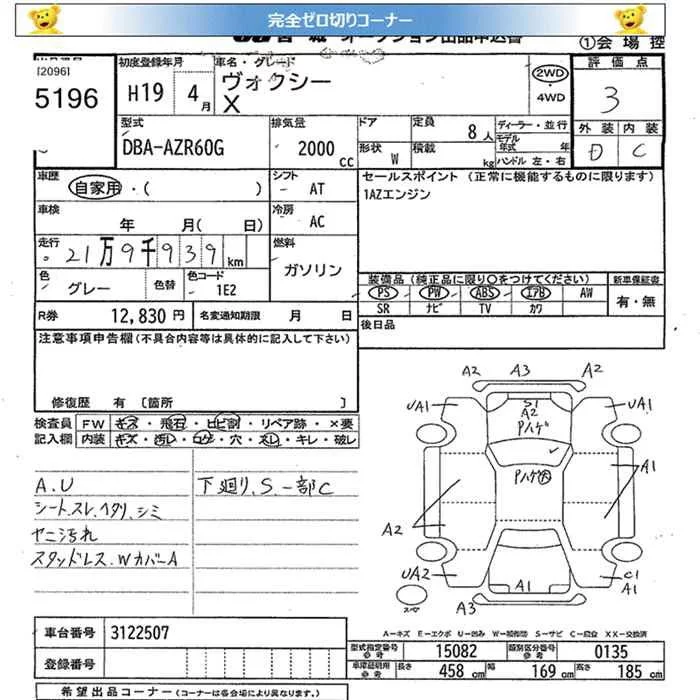 完全ゼロ切りコーナー
宮城 オークション出品申込書
①会場控
[2096]
5196
初度登録年月
H19 4月
車名・グレード
ヴォクシー
X
2WD
・
4WD
評価点
3
外装 内装
D C
型式
DBA-AZR60G
排気量
2000 cc
ドア
形状 W
定員 8人
積載 kg
ディーラー・並行
モデル年式 年
ハンドル 左・右
車歴
自家用・( )
シフト AT
セールスポイント (正常に機能するものに限ります)
1AZエンジン
車検
年 月( 日)
冷房 AC
走行
21万9千939km
燃料
ガソリン
色 グレー 色替
色コード 1E2
装備品 (純正品に限り○をつけてください)
新車保証書
PS PW ABS エアB AW
SR ナビ TV カワ
有・無
R券 12,830円
名変通知期限 月 日
後日品
注意事項申告欄(不具合内容等は具体的に記入して下さい)
修復歴 有 [箇所 ]
検査員記入欄
FW キズ・飛石・ヒビ割・リペア跡・×要
内装 キズ・汚レ・コゲ・穴・スレ・キレ・破レ
A.U
シートスレ、ヘタリ、シミ
ヤニ汚れ
スタッドレス.Wカバー A
下廻り、S.一部C
A2 A3 A2
UA1 S1 UA1
A2
Pハゲ
Pハゲ
A1
A2
UA2 A1 C1
A1
A3
スペア
A−キズ E−エクボ U−凹み W−補修跡 S−サビ C−腐食 XX−交換済
車台番号 3122507
登録番号
型式指定番号 参考 15082
類別区分番号 参考 0135
車庫証明用 参考 長さ 458cm 幅 169cm 高さ 185cm
希望出品コーナー (コーナーは各会場により異なります。)